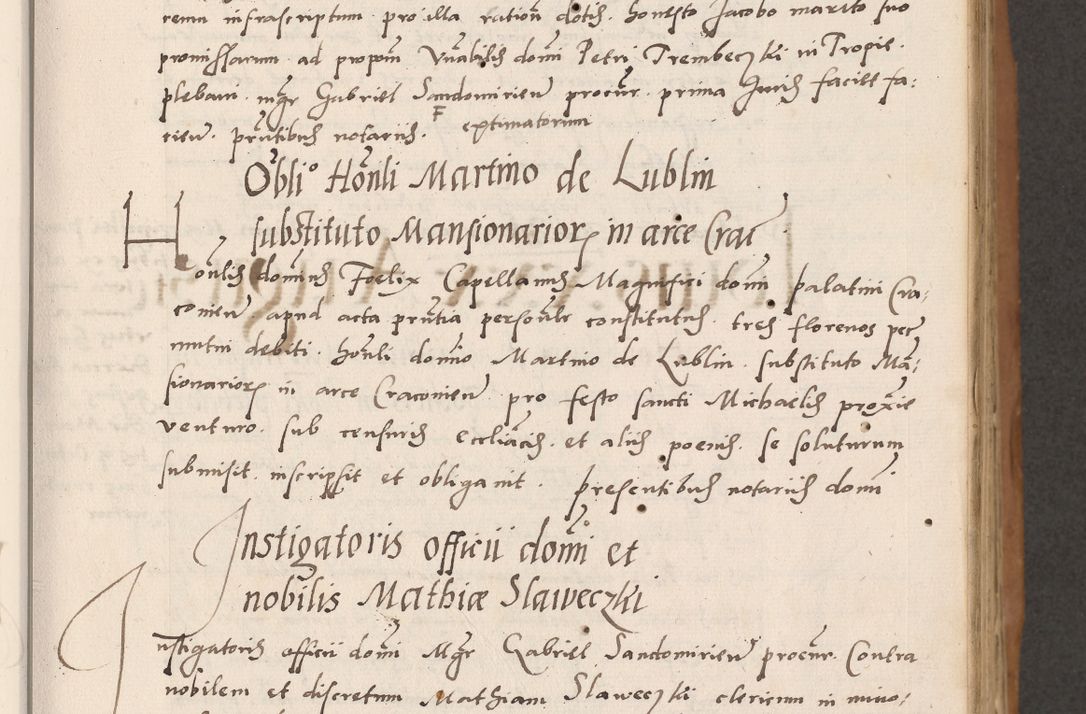 remu infrascriptum pro illa ration dotis. honesto Jacobo marito suo
promissarum ad propom Vnabilis domi Petri Trembeczki in Tropie.
plebani. mgr Gabriel Sandomirien procur. prima Juris facile fa:
cien. prntibus notariis. F extimatorum
Oblio Honli Martino de Lublin
substituto Mansionarior in arce Crac
Honlis dominus Foelix Capellanus Magnifici domi palatini Cra:
conien apud acta prntia personlr constitutus. tres florenos pec
mutui debiti. honli domino Martino de Lublin. substituto Mã:
sionarior in arce Craconien pro festo sancti Michaelis proxie
venturo. sub censuris eccliacis. et aliis poenis. se soluturum
submisit. inscripsit et obligauit. presentibus notariis domi
Instigatoris officii domi et
nobilis Mathiæ Slaweczki
Instigatoris officii domi Mgr Gabriel Sandomirien procur. Contra
nobilem et discretum Mathiam Slaweczki clericum in mino: